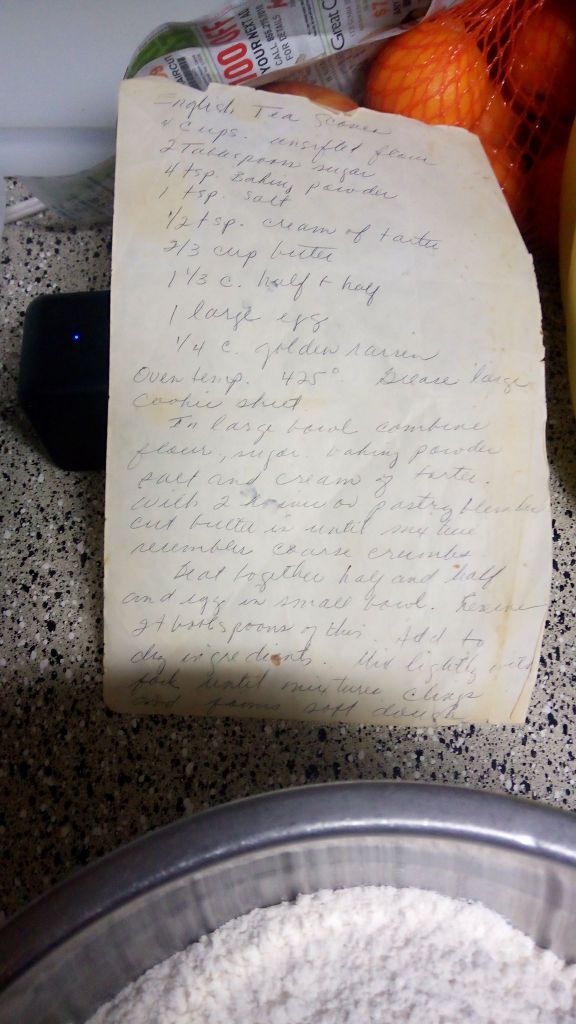 AIRCON
100 OFF
YOUR NEXT AC
CALL 855.275.
FOR DETAILS
Great C
$7
English Tea Scones
4 cups. unsifted flour
2 Tablespoon sugar
4 tsp. Baking powder
1 tsp. salt
1/2 tsp. cream of tarter
2/3 cup butter
1 1/3 c. half + half
1 large egg
1/4 c. golden raisin
Oven temp. 425° Grease large
cookie sheet
In large bowl combine
flour, sugar, baking powder
salt and cream of tarter.
With 2 knives or pastry blender
cut butter in until mixture
resembles coarse crumbs
Beat together half and half
and egg in small bowl. Reserve
2 tablespoons of this. Add to
dry ingredients. Mix lightly with
fork until mixtures clings
and forms soft dough